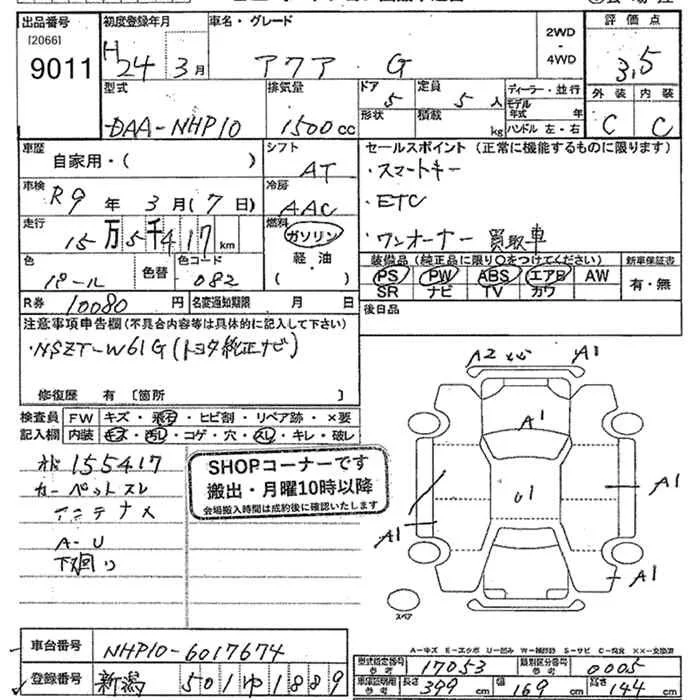 出品番号 初度登録年月 車名・グレード 評価点
[2066]
9011
H24年3月 アクア G 2WD・4WD 3,5
型式 排気量 ドア 定員 ディーラー・並行 外装 内装
DAA-NHP10 1500cc 5 5人 モデル年式 年 C C
形状 積載 kg ハンドル 左・右
車歴 シフト セールスポイント (正常に機能するものに限ります)
自家用・( ) AT ・スマートキー
車検 冷房
R9年3月(7日) AAC ・ETC
走行 燃料
15万5千417km ガソリン ・ワンオーナー 買取車
色 色替 色コード 軽・油 装備品 (純正品に限り○をつけてください) 新車保証書
パール 082 ( ) PS PW ABS エアB AW 有・無
SR ナビ TV カワ
R券 10080円 名変通知期限 月 日 後日品
注意事項申告欄(不具合内容等は具体的に記入して下さい)
・NSZT-W61G(トヨタ純正ナビ)
修復歴 有 〔箇所 〕
検査員 FW キズ・飛石・ヒビ割・リペア跡・×要
記入欄 内装 キズ・汚れ・コゲ・穴・スレ・キレ・破レ
オド 155417
カーペットスレ
アンテナメ
A-U
下廻り
SHOPコーナーです
搬出・月曜10時以降
会場搬入時間は成約後に確認いたします
A2 A1
A1
U1
A1
A1
A1
スペア
車台番号 NHP10-6017674
登録番号 新潟 501ゆ1889
A-キズ E-エクボ U-凹み W-補修跡 S-サビ C-腐食 XX-交換済
型式指定番号 参考 17053 類別区分番号 参考 0005
車庫証明用 参考 長さ 399cm 幅 169cm 高さ 144cm